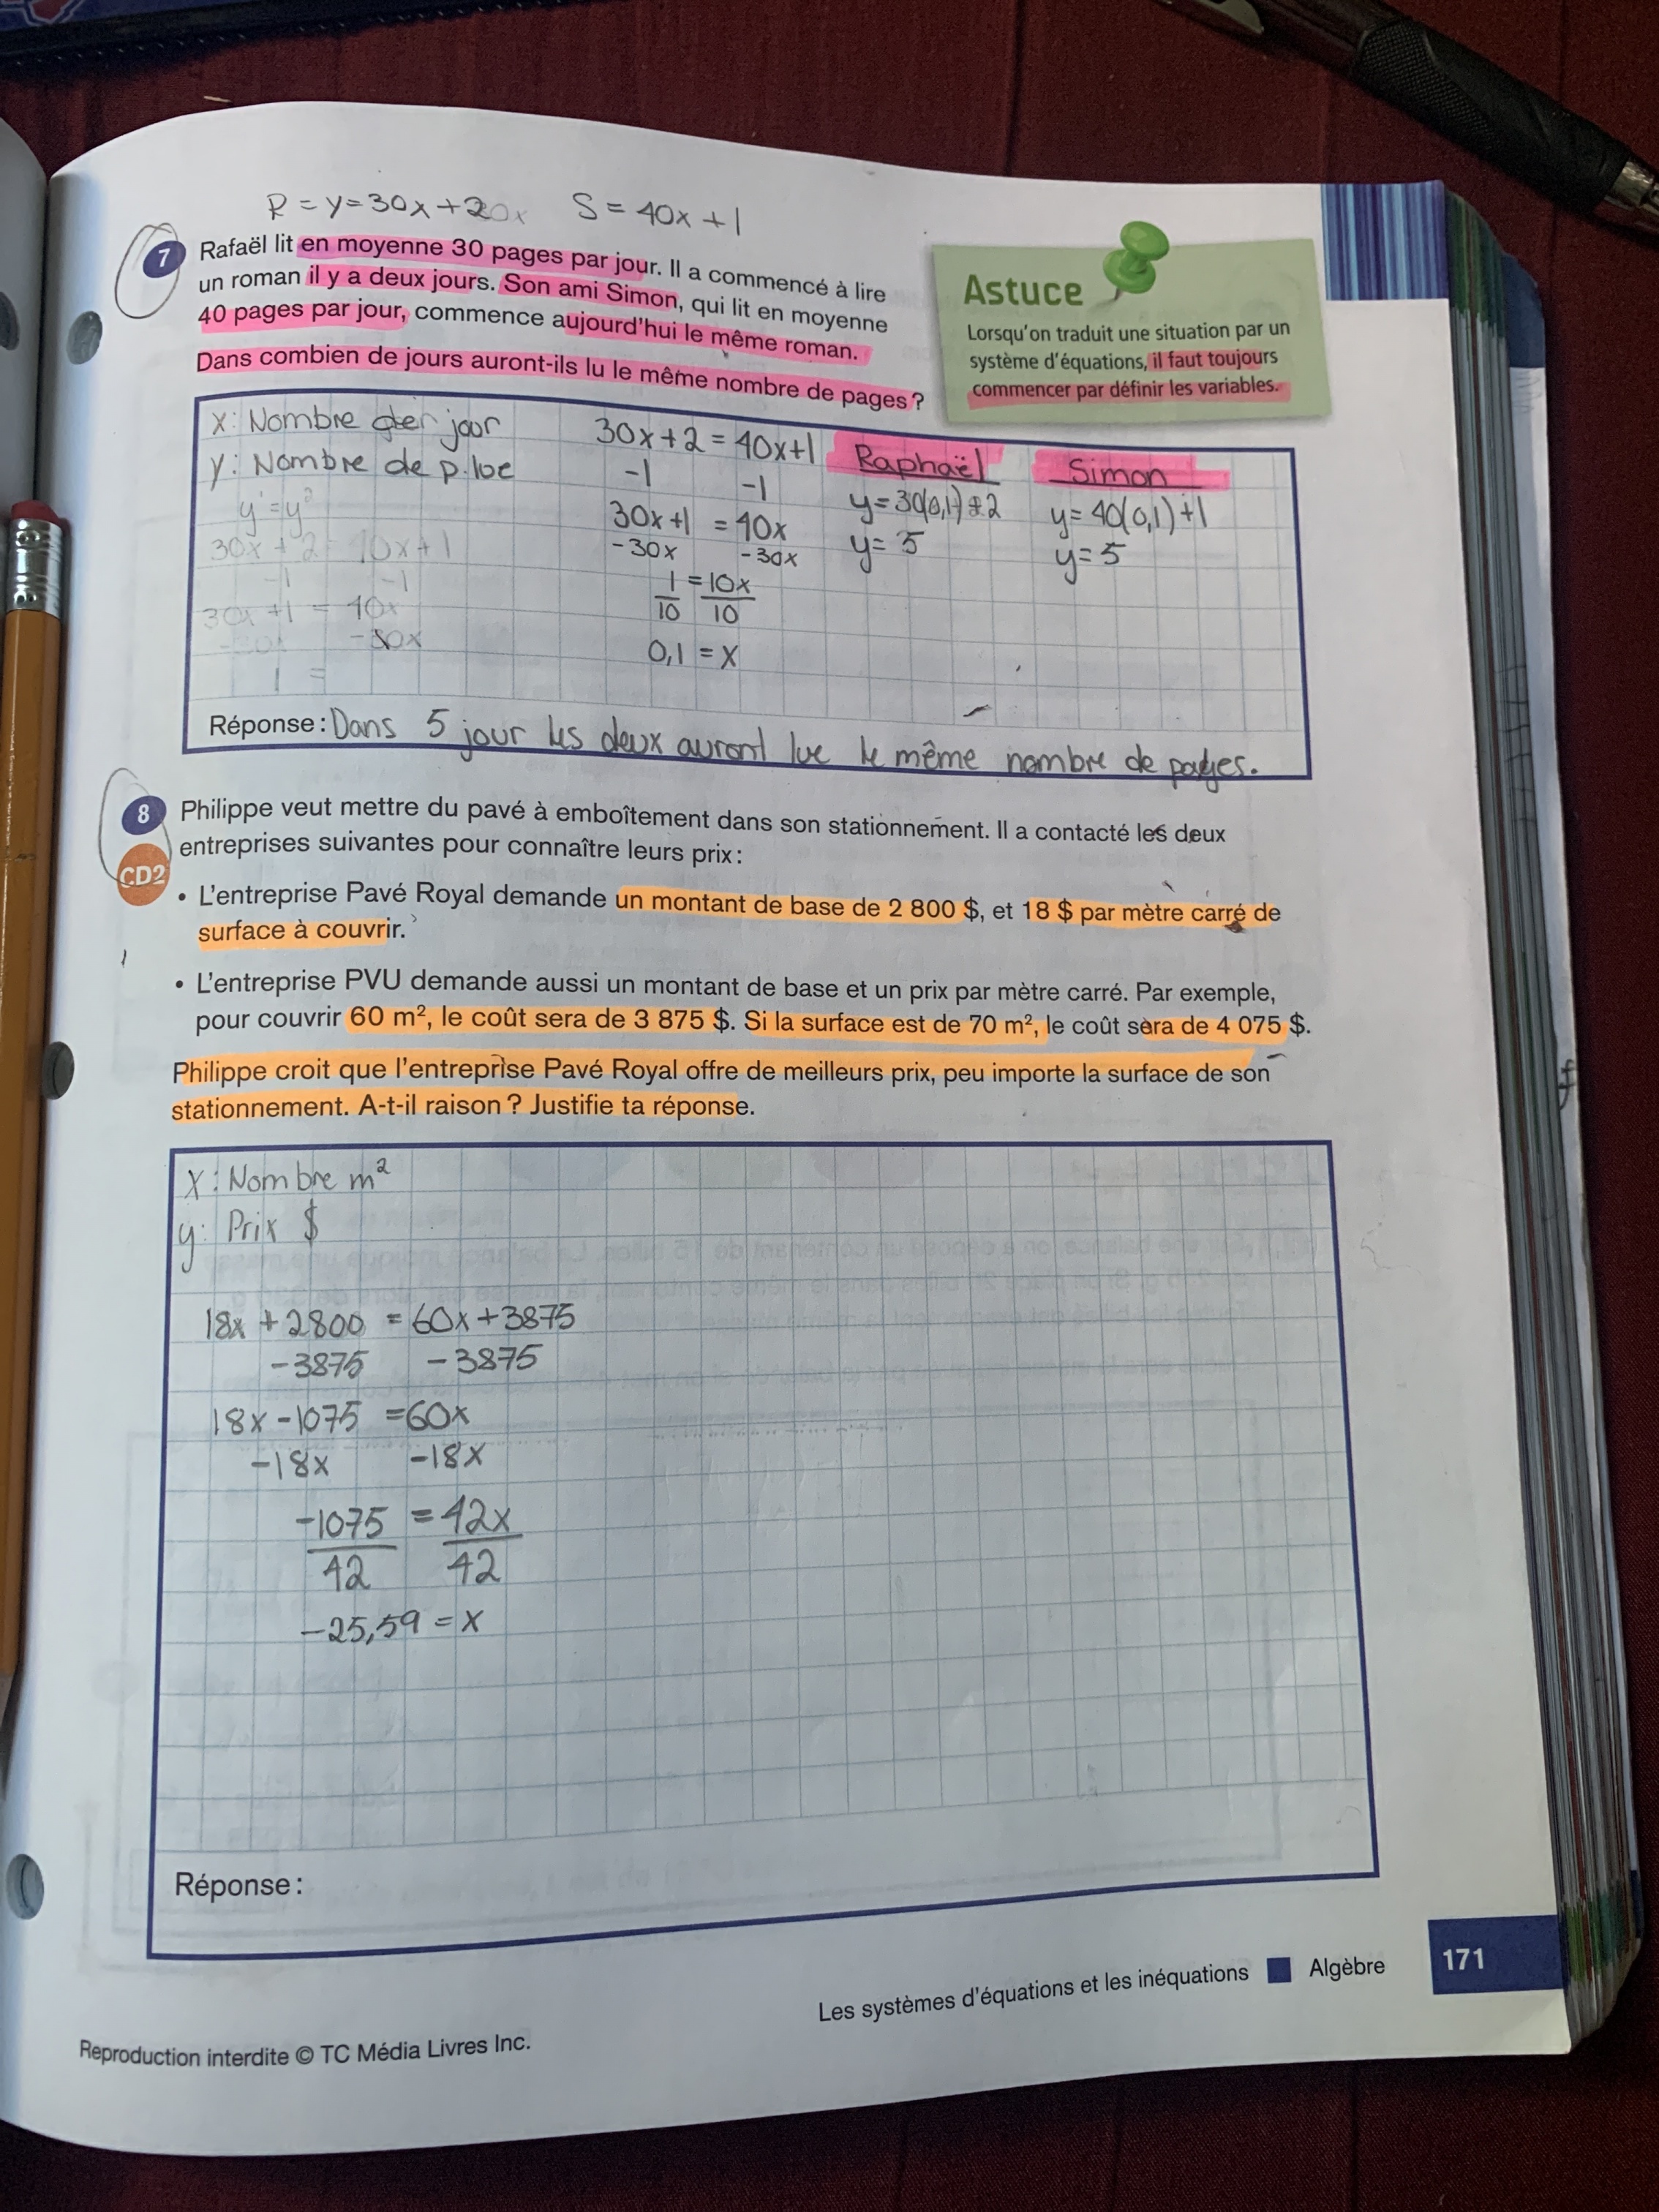 R = y=30x+20x S = 40x + 1
7 Rafaël lit en moyenne 30 pages par jour. Il a commencé à lire
un roman il y a deux jours. Son ami Simon, qui lit en moyenne
40 pages par jour, commence aujourd'hui le même roman.
Dans combien de jours auront-ils lu le même nombre de pages ?
Astuce
Lorsqu'on traduit une situation par un
système d'équations, il faut toujours
commencer par définir les variables.
x: Nombre jour
y: Nombre de p.
y¹=y²
30x + 2 = 40x + 1
-1 -1
30x +1 = 40x
-30x -30x
1 =
30x+2 = 40x+1
-1 -1
30x+1 = 40x
-30x -30x
1 = 10x
10 10
0,1 = x
Raphaël
y= 30(0,1)+2
y= 5
Simon
y= 40(0,1)+1
y= 5
Réponse : Dans 5 jour les deux auront lue le même nombre de pages.
8 Philippe veut mettre du pavé à emboîtement dans son stationnement. Il a contacté les deux
entreprises suivantes pour connaître leurs prix :
CD2
• L'entreprise Pavé Royal demande un montant de base de 2 800 $, et 18 $ par mètre carré de
surface à couvrir.
• L'entreprise PVU demande aussi un montant de base et un prix par mètre carré. Par exemple,
pour couvrir 60 m², le coût sera de 3 875 $. Si la surface est de 70 m², le coût sera de 4 075 $.
Philippe croit que l'entreprise Pavé Royal offre de meilleurs prix, peu importe la surface de son
stationnement. A-t-il raison ? Justifie ta réponse.
x: Nombre m²
y: Prix $
18x + 2800 = 60x + 3875
-3875 -3875
18x - 1075 = 60x
-18x -18x
-1075 = 42x
42 42
-25,59 = x
Réponse :
Les systèmes d'équations et les inéquations ■ Algèbre 171
Reproduction interdite © TC Média Livres Inc.